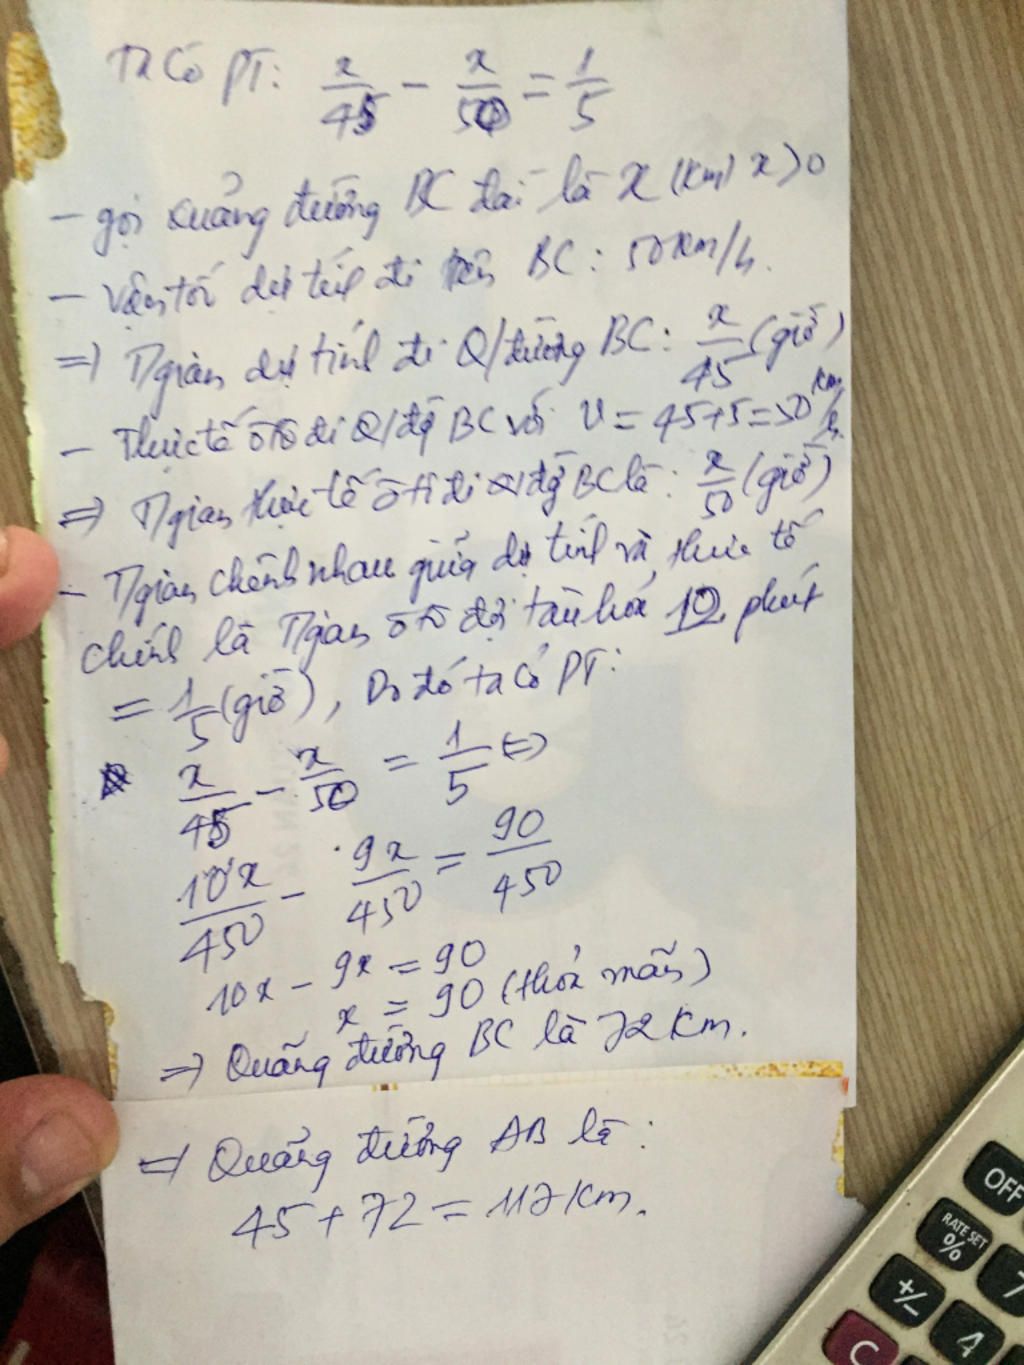 Ta có PT: x/45 - x/50 = 1/5
- gọi quảng đường BC dài là x (km) x>0
- vận tốc dự tính đi trên BC: 50km/h.
=> Tgian dự tính đi Q/đường BC: x/45 (giờ)
- Thực tế ôtô đi Q/đg BC với V = 45+5=50 km/h.
=> Tgian thực tế ôtô đi Q/đg BC là: x/50 (giờ)
- Tgian chênh nhau giữa dự tính và thực tế
chính là Tgian ôtô đợi tàu hoả phút
= 1/5 (giờ), Do đó ta có PT:
x/45 - x/50 = 1/5 <=>
10x/450 - 9x/450 = 90/450
10x - 9x = 90
x = 90 (thoả mãn)
=> Quãng đường BC là 72 Km.
=> Quảng đường AB là:
45 + 72 = 117 Km.
OFF
RATE SET
%
7
+/-
4
C